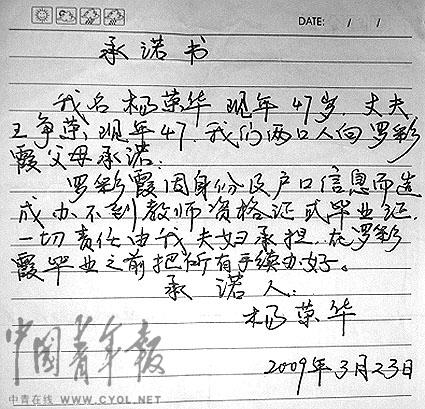 DATE: / /
承诺书
我名杨荣华 现年47岁,丈夫
王争荣,现年47.我们两口人向罗彩
霞父母承诺:
罗彩霞因身份及户口信息而造
成办不到教师资格证或毕业证,
一切责任由我夫妇承担.在罗彩
霞毕业之前把所有手续办好。
承诺人:
杨荣华
2009年3月23日
中国青年报
中青在线 WWW.CYOL.NET